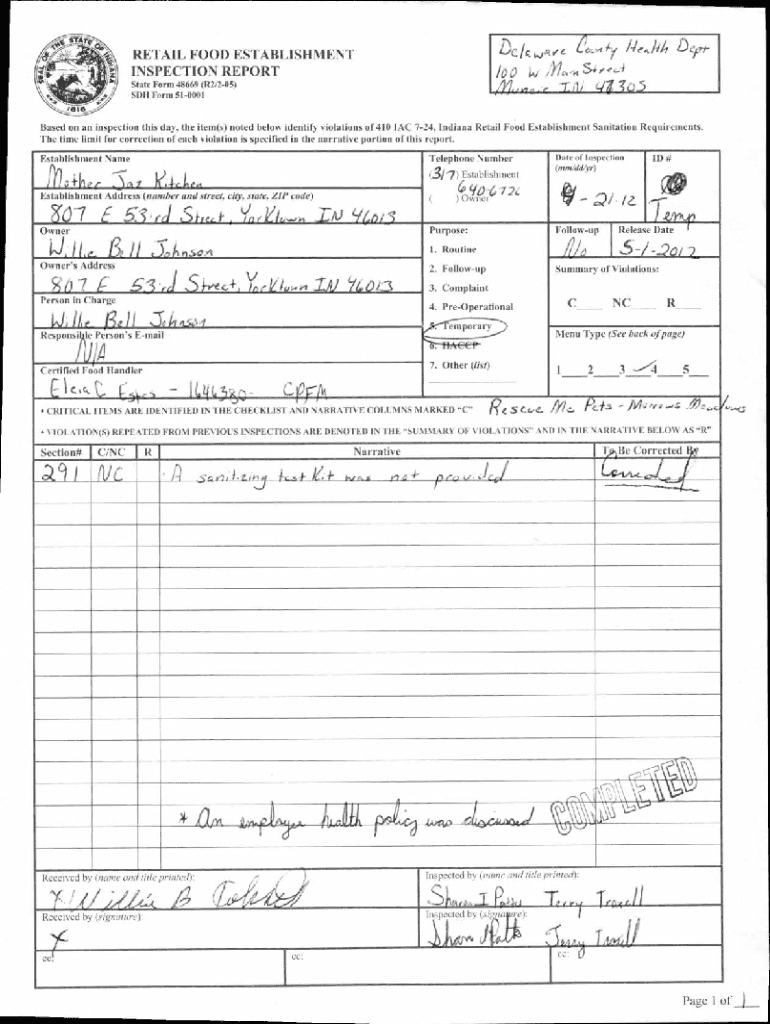 SEAL OF THE STATE OF INDIANA
1816
RETAIL FOOD ESTABLISHMENT
INSPECTION REPORT
State Form 48669 (R2/2-05)
SDH Form 51-0001
Delaware County Health Dept
100 W Main Street
Muncie IN 47305
Based on an inspection this day, the item(s) noted below identify violations of 410 IAC 7-24, Indiana Retail Food Establishment Sanitation Requirements.
The time limit for correction of each violation is specified in the narrative portion of this report.
Establishment Name
Mother Jaz Kitchen
Telephone Number
(317) Establishment
640-6726
( ) Owner
Date of Inspection
(mm/dd/yr)
-21-12
ID #
Temp
Establishment Address (number and street, city, state, ZIP code)
807 E 53rd Street, Yorktown IN 46013
Owner
Willie Bell Johnson
Purpose:
1. Routine
2. Follow-up
3. Complaint
4. Pre-Operational
5. Temporary
6. HACCP
7. Other (list)
Follow-up
No
Release Date
5-1-2012
Owner's Address
807 E 53rd Street, Yorktown IN 46013
Summary of Violations:
C____ NC____ R____
Person in Charge
Willie Bell Johnson
Responsible Person's E-mail
N/A
Menu Type (See back of page)
1____2____3____4____5____
Certified Food Handler
Estes - 1646380- CPFM
• CRITICAL ITEMS ARE IDENTIFIED IN THE CHECKLIST AND NARRATIVE COLUMNS MARKED "C"
Rescue Me Pets - Morrows Meadows
• VIOLATION(S) REPEATED FROM PREVIOUS INSPECTIONS ARE DENOTED IN THE "SUMMARY OF VIOLATIONS" AND IN THE NARRATIVE BELOW AS "R"
Section# C/NC R Narrative To Be Corrected By
291 NC A sanitizing test kit was not provided Corrected
* An employee health policy was discussed
COMPLETED
Received by (name and title printed):
x Willie B
Inspected by (name and title printed):
Terry Troxell
Received by (signature):
x
Inspected by (signature):
Terry Troxell
cc:
cc:
cc:
Page 1 of 1